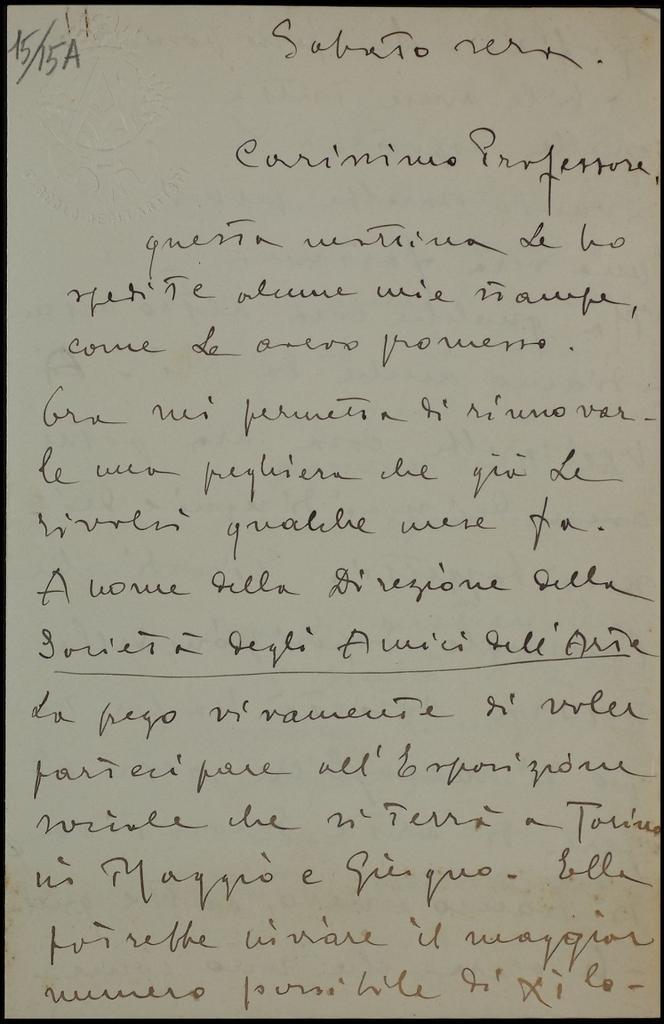 15/15A
Sabato sera.
CIRCOLO DEGLI ARTISTI
Carissimo Professore,
questa mattina Le ho
spedite alcune mie stampe,
come Le avevo promesso.
Ora mi permetta di rinnovar-
le una preghiera che già Le
rivolsi qualche mese fa.
A nome della Direzione della
Società degli Amici dell'Arte
La prego vivamente di voler
partecipare all'Esposizione
sociale che si terrà a Torino
in Maggio e Giugno. Ella
potrebbe inviare il maggior
numero possibile di xilo-